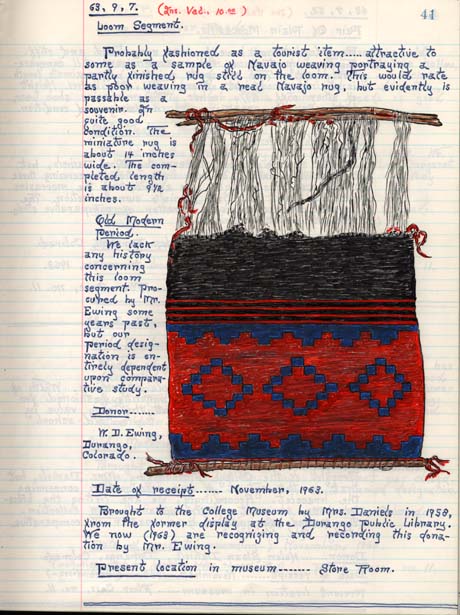 68, 9, 7. (Ins. Val., 10.00)
44
Loom Segment.
Probably fashioned as a tourist item.....attractive to
some as a sample of Navajo weaving portraying a
partly finished rug still on the loom. This would rate
as poor weaving in a real Navajo rug, but evidently is
passable as a
souvenir. In
quite good
condition. The
miniature rug is
about 14 inches
wide. The com-
pleted length
is about 9½
inches.
Old Modern
Period.
We lack
any history
concerning
this loom
segment. Pro-
cured by Mr.
Ewing some
years past,
but our
period desig-
nation is en-
tirely dependent
upon compara-
tive study.
Donor-------
W. D. Ewing,
Durango,
Colorado.
Date of receipt------- November, 1968.
Brought to the College Museum by Mrs. Daniels in 1958,
from the former display at the Durango Public Library.
We now (1968) are recognizing and recording this dona-
tion by Mr. Ewing.
Present location in museum------- Store Room.